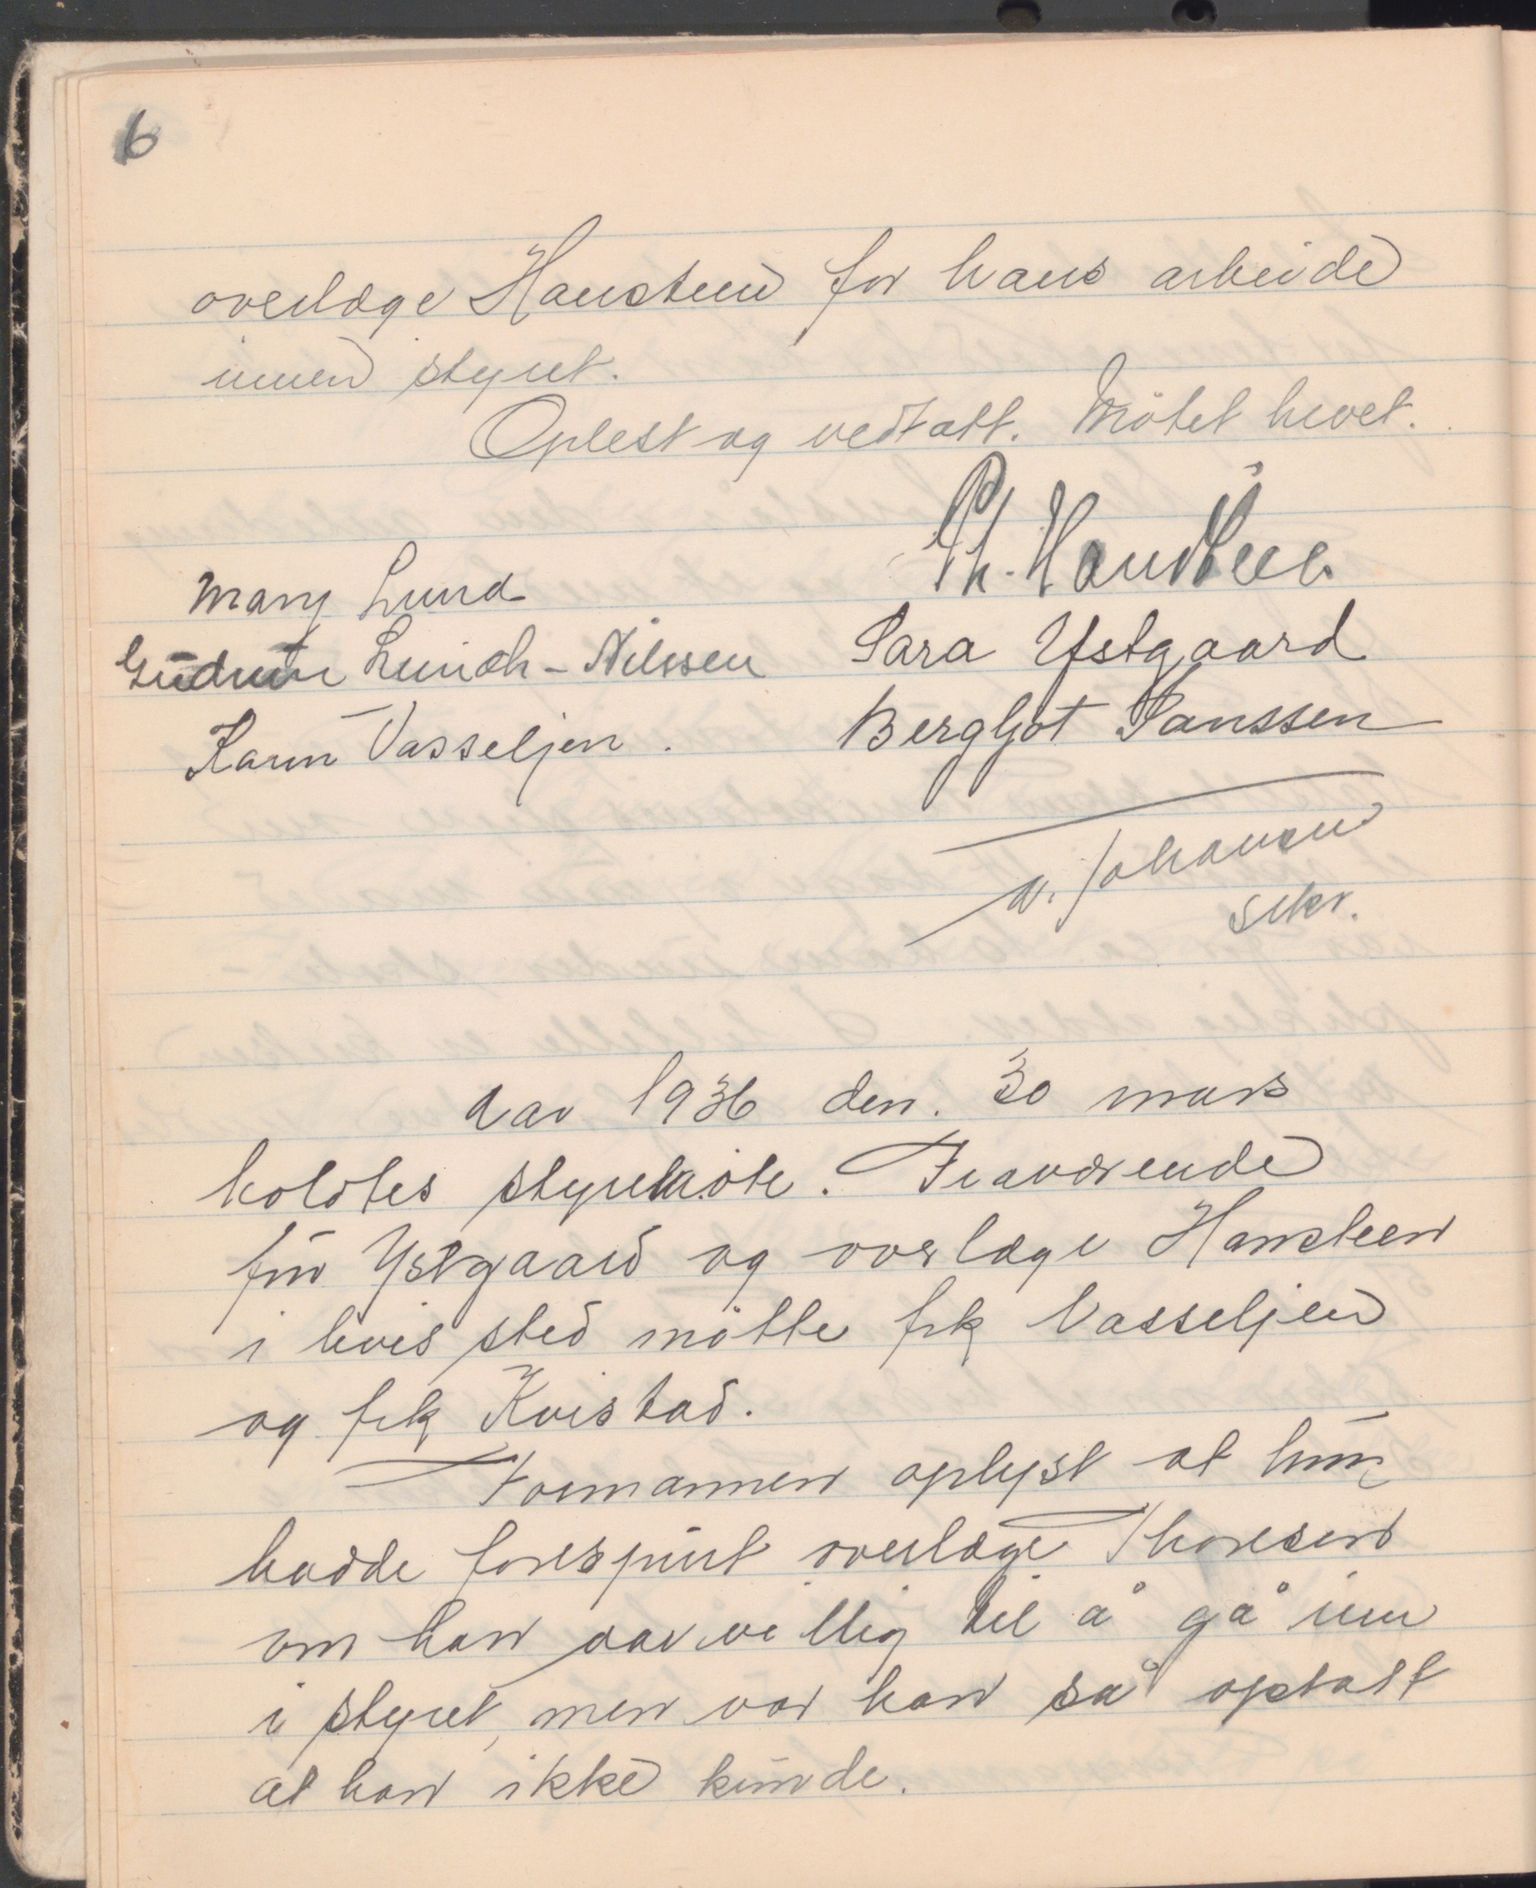 6
overlæge Hansteen for hans arbeide
innen styret.
Oplest og vedtatt. Møtet hevet.
Th. Hansteen.
Mary Lund
Sara Ystgaard
Gudrun Lunch-Nilssen
Bergljot Janssen
Karin Vasseljen.
N. Johansen
sekr.
Aar 1936 den. 30 mars
holdtes styremøte. Fraværende
fru Ystgaard og overlæge Hansteen
i hvis sted møtte frk Vasseljen
og frk Kvistad.
Formannen oplyst at hun
hadde forespurt overlæge Thoresen
om han var villig til å gå inn
i styret, men var han så optatt
at han ikke kunde.